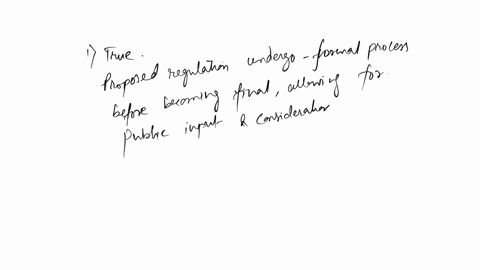 1) True.
Proposed regulation undergo formal process
before becoming final, allowing for
public input & consideration